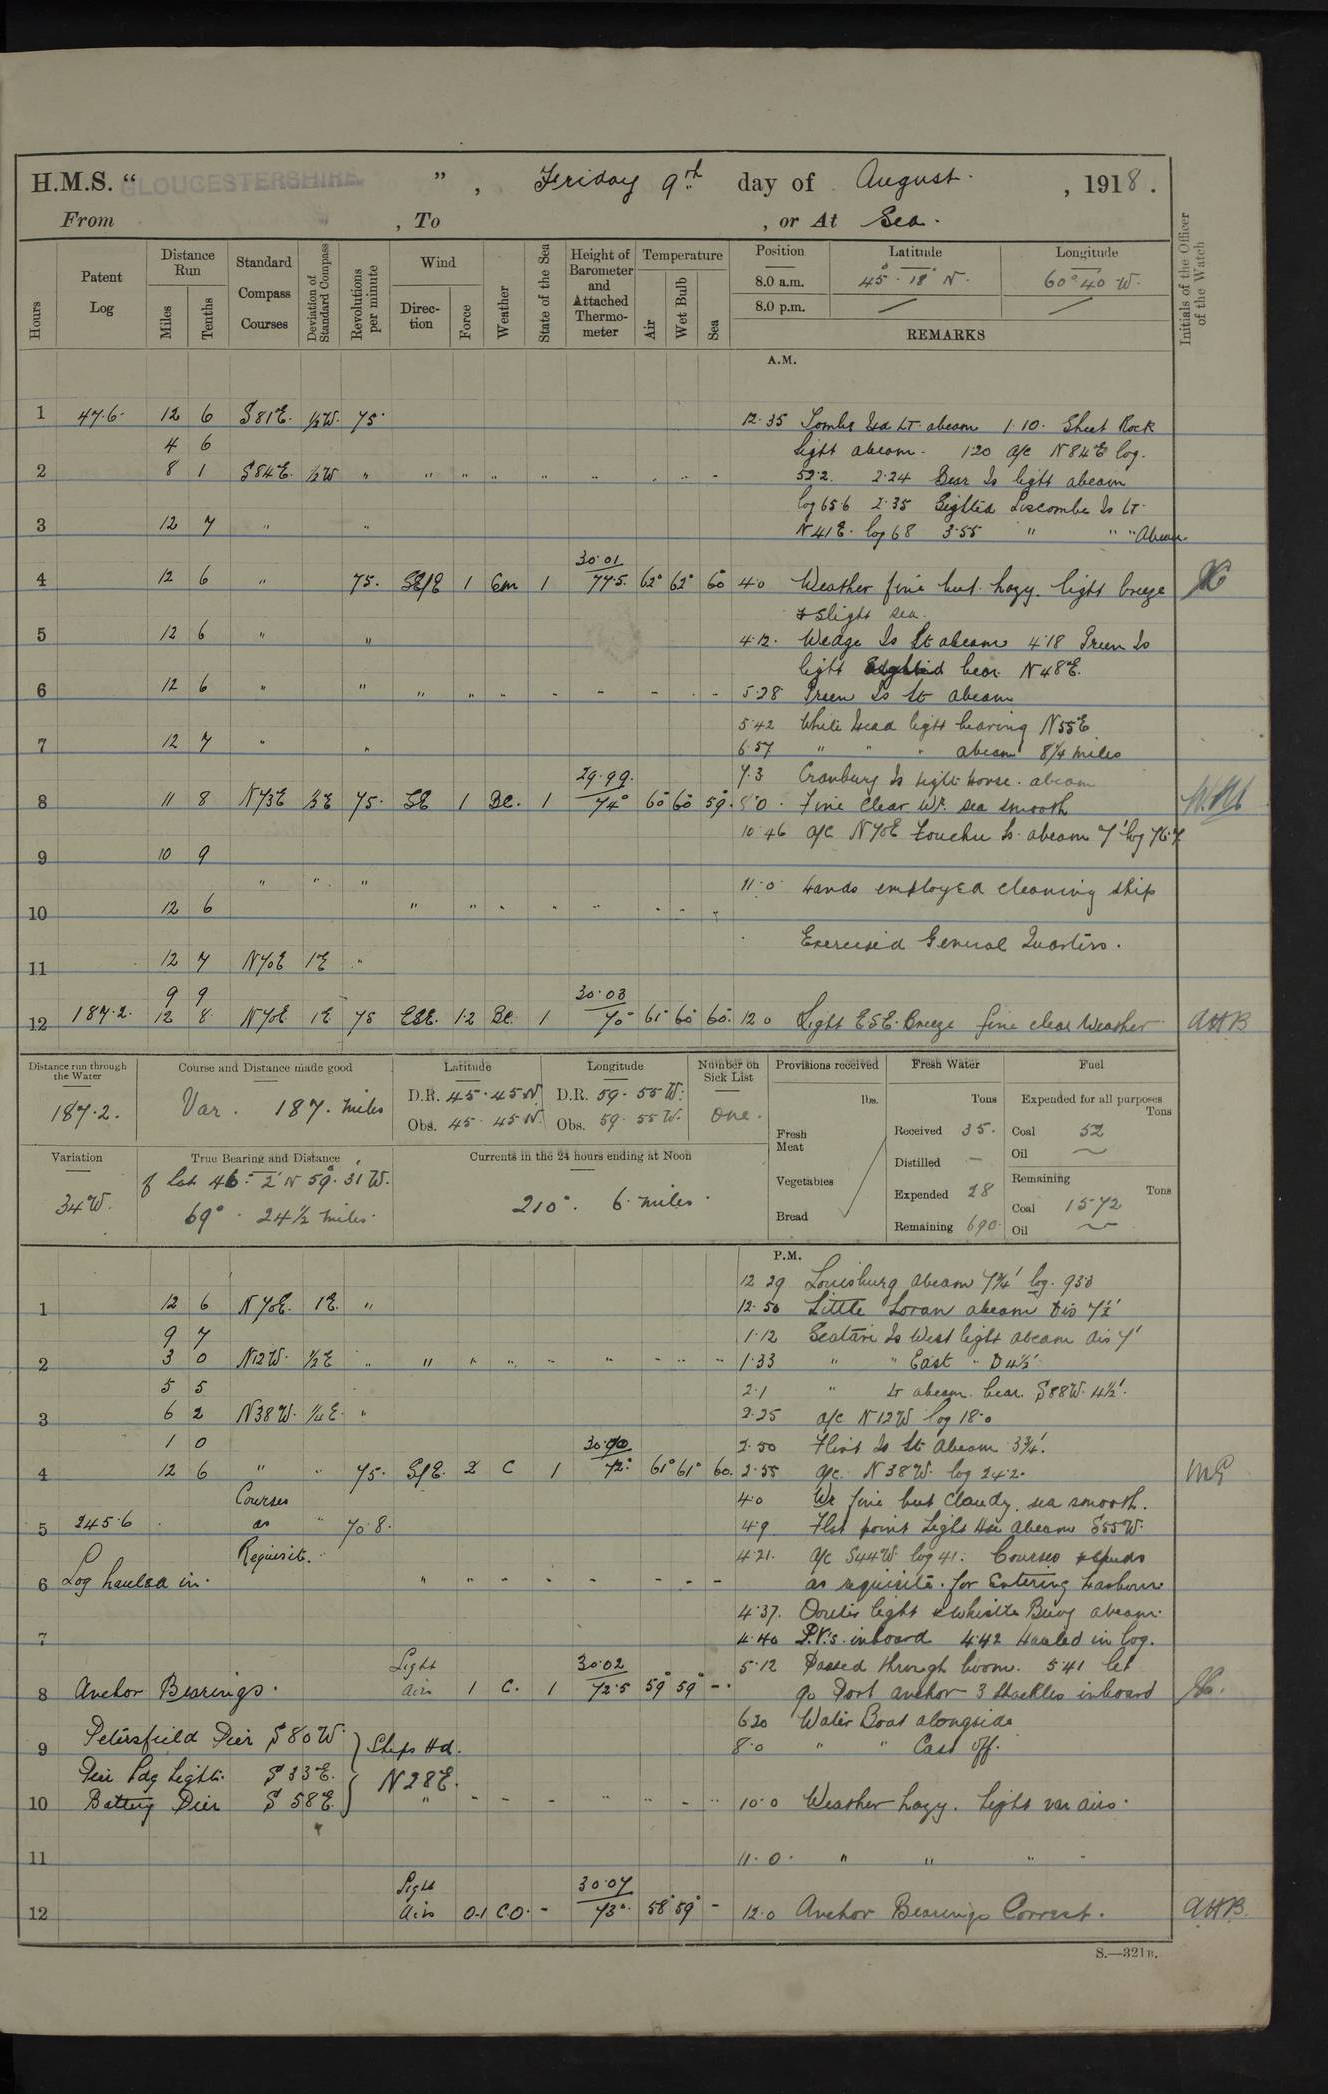 H.M.S. “ GLOUCESTERSHIRE ” , Friday 9th day of August. , 1918.
From , To , or At Sea.
Hours
Patent Log
Distance Run
Miles
Tenths
Standard Compass Courses
Deviation of Standard Compass
Revolutions per minute
Wind
Direction
Force
Weather
State of the Sea
Height of Barometer and Attached Thermometer
Temperature
Air
Wet Bulb
Sea
Position
Latitude
Longitude
8.0 a.m. 45°·18' N. 60°·40 W.
8.0 p.m. / /
REMARKS
Initials of the Officer of the Watch
A.M.
1 47.6 12 6 S81E. ½W. 75. 12.35 Tombs Isd Lt. abeam 1.10. Sheet Rock
4 6 light abeam. 1.20 a/c N84E log.
2 8 1 S84E. ½W " " " " " " 52.2. 2.24 Bear Is light abeam
log 65.6 2.35 Sighted Liscombe Is Lt.
3 12 7 " " N41E. log 68 3.55 " " " Abeam.
30.01
4 12 6 " 75. SE/E 1 Cm 1 77.5. 62° 62° 60 4.0 Weather fine but hazy. light breeze
& slight sea.
5 12 6 " " 4.12. Wedge Is Lt abeam 4.18 Green Is
light bear N48E.
6 12 6 " " " " " - - - - - 5.28 Green Is Lt abeam
5.42 White Head light bearing N55E
7 12 7 " " 6.57 " " " abeam 8¼ miles
29.99. 7.3 Cranbury Is Light House. abeam
8 11 8 N73E ½E 75. SE 1 Bc. 1 74° 60 60 59. 8.0. Fine clear Wr. sea smooth
10.46 a/c N70E Fouchu Is. abeam 7' log 76.7
9 10 9
" " " 11.0 Hands employed cleaning ship
10 12 6 " " " - " - - -
Exercised General Quarters.
11 12 7 N70E 1E "
9 9 30.03
12 187.2. 12 8. N70E 1E 75 ESE. 1.2 Bc. 1 70° 61° 60 60. 12.0 Light ESE. Breeze fine clear Weather A H B
Distance run through the Water
187.2.
Course and Distance made good
Var. 187. miles
Latitude
D.R. 45.45 N.
Obs. 45. 45 N.
Longitude
D.R. 59. 55 W.
Obs. 59. 55 W.
Number on Sick List
One.
Provisions received
lbs.
Fresh Meat
Vegetables
Bread
Fresh Water
Tons
Received 35.
Distilled —
Expended 28
Remaining 690.
Fuel
Expended for all purposes
Tons
Coal 52
Oil ~
Remaining
Tons
Coal 1572
Oil ~
Variation
34 W.
True Bearing and Distance
of Lat 46° 2' N 59° 31' W.
69°. 24½ miles.
Currents in the 24 hours ending at Noon
210°. 6. miles.
P.M.
12 29 Louisburg abeam 7¾' log. 93.0
1 12 6 N70E. 1E. " 12.50 Little Loran abeam Dis 7½'
9 7 1.12 Scatari Is West light abeam dis 7'
2 3 0 N12W. ½E " " " " - " - - - 1.33 " " East " D 4½'
5 5 2.1 " Lt abeam. bear. S88W. 4½'.
3 6 2 N38W. ¼E. " 2.25 a/c N12W log 18.0
1 0 30.00 2.50 Flint Is Lt. Abeam 3¾'.
4 12 6 " " 75. S/E. 2 C 1 72° 61° 61° 60. 2.55 a/c. N38W. log 24.2.
Courses 4.0 Wr fine but Cloudy. sea smooth.
5 245.6 as " 70.8. 4.9 Flat point Light Hse Abeam S55W.
Requisite. 4.21. a/c S44W. log 41. Courses & speeds
6 Log hauled in. " " - - - - - - as requisite. for Entering harbour.
4.37. Outer light & Whistle Buoy abeam.
7 4.40 P.V's. inboard 4.42 Hauled in log.
Light 30.02 5.12 Passed through boom. 5.41 let
8 Anchor Bearings. airs 1 C. 1 72.5 59° 59° - go Port anchor 3 Shackles inboard
6.20 Water Boat alongside
9 Petersfield Pier S80W. } Ships Hd. 8.0 " " Cast off.
Pier Ldg Light. S33E. N28E.
10 Battery Pier S58E. " - - - " " - " 10.0 Weather hazy. Light var airs.
11 11.0. " " " -
Light 30.07
12 airs 0.1 C.O. - 73°. 58° 59° - 12.0 Anchor Bearings Correct. A H B.
S.—321B.